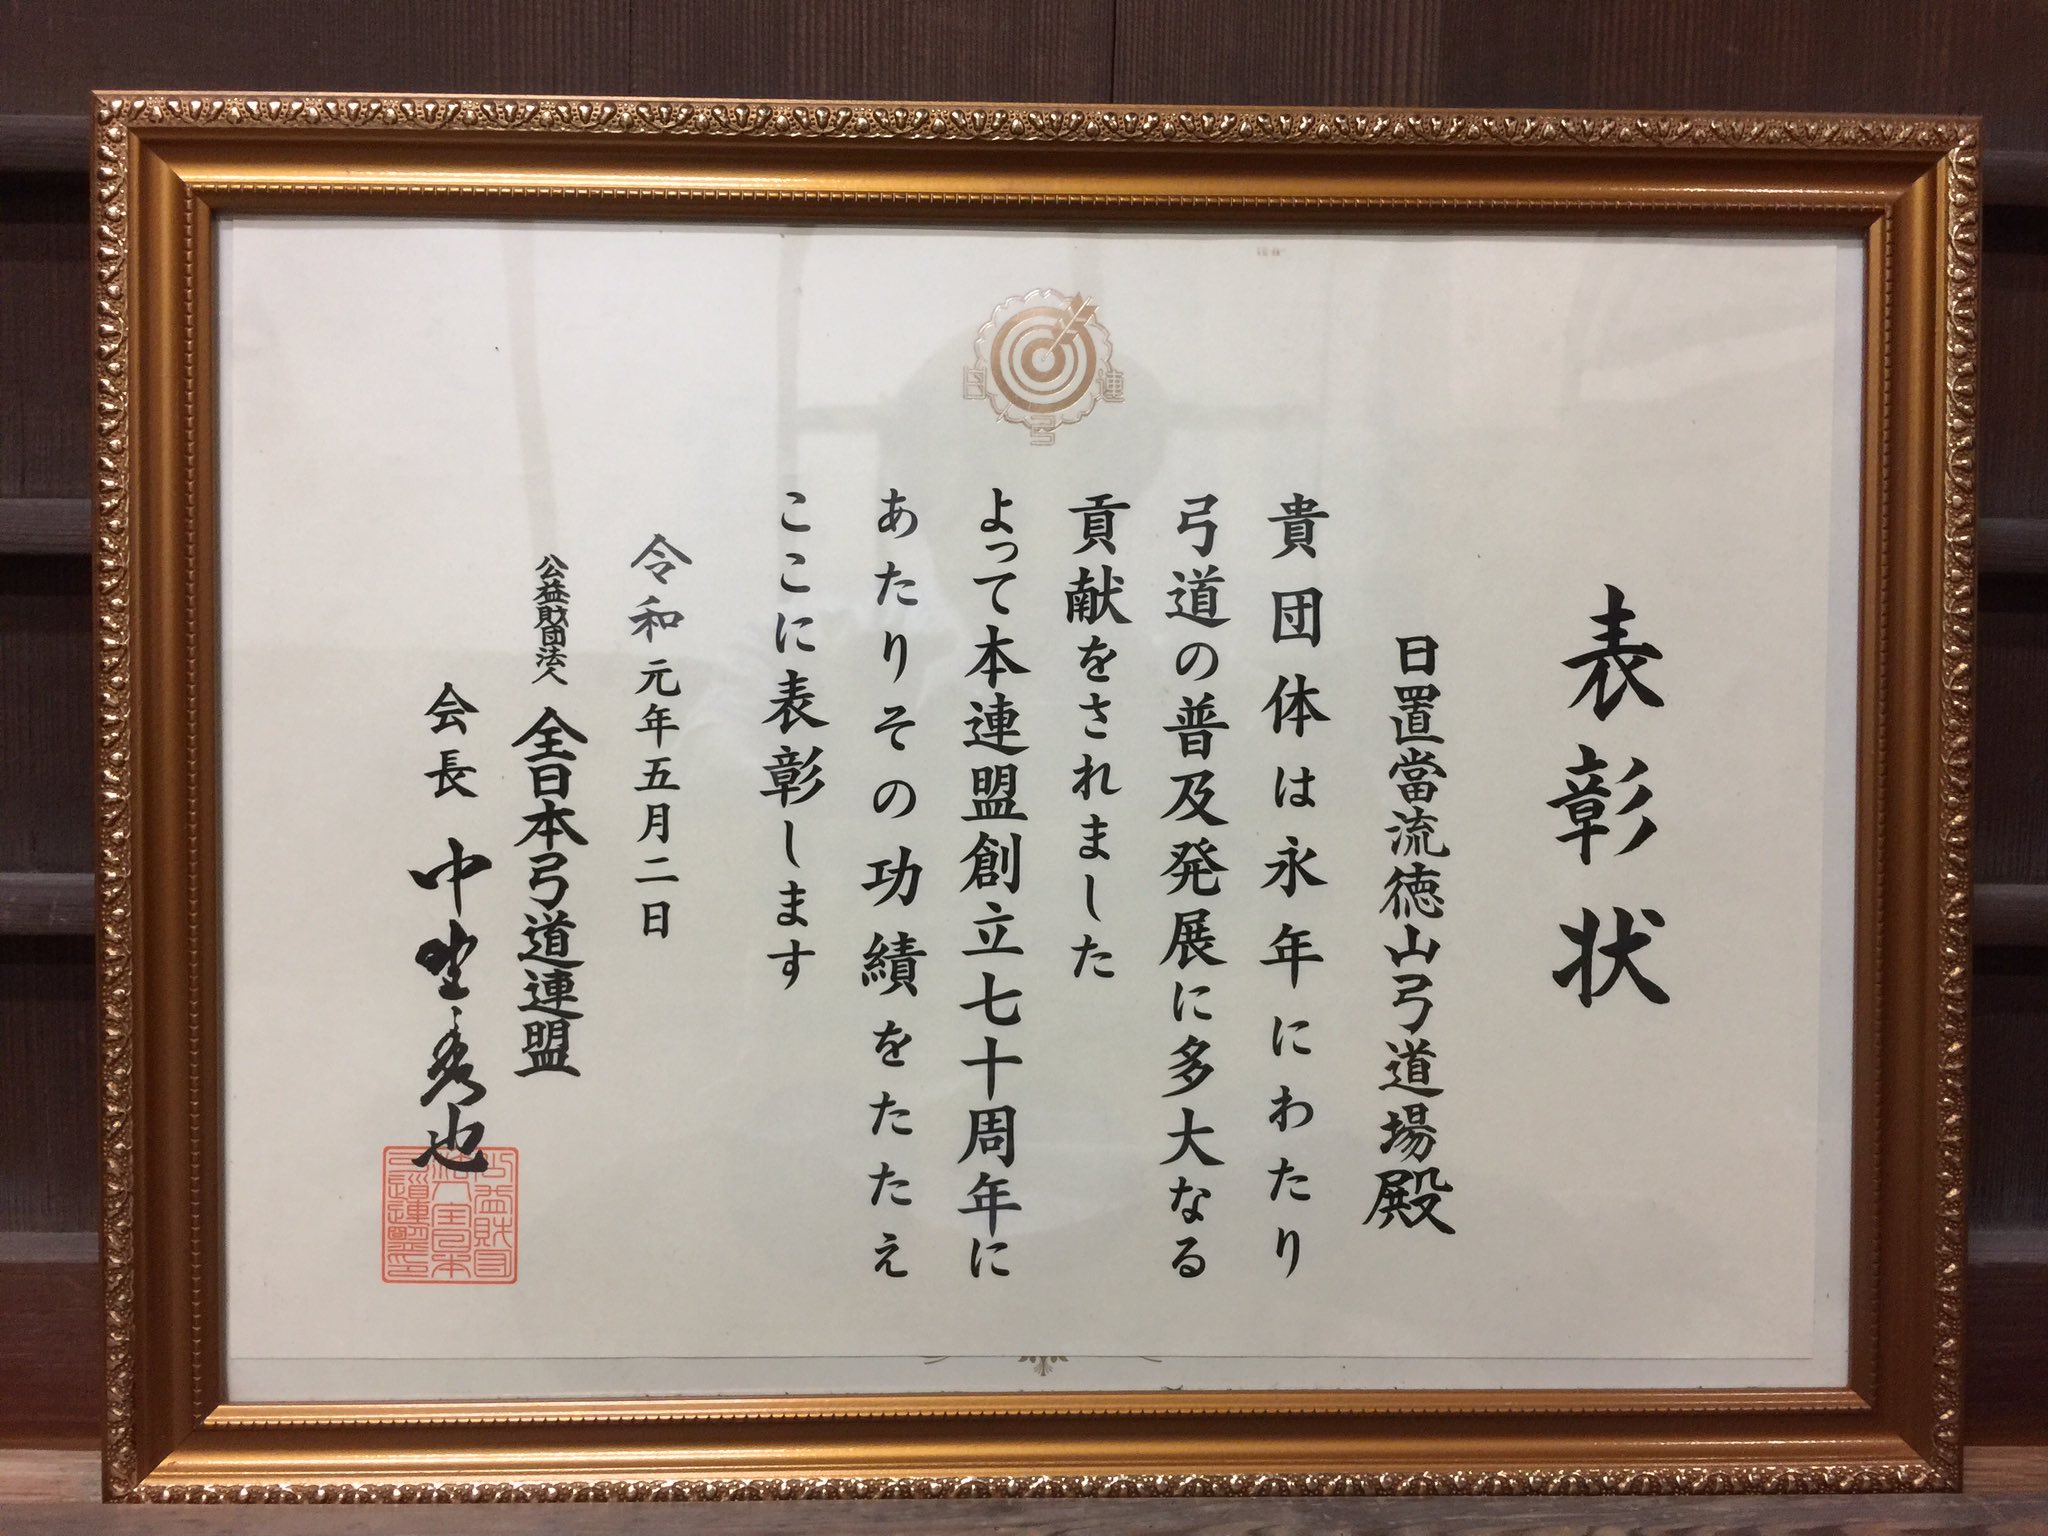 日弓連
表彰状
日置當流徳山弓道場殿
貴団体は永年にわたり
弓道の普及発展に多大なる
貢献をされました
よって本連盟創立七十周年に
あたりその功績をたたえ
ここに表彰します
令和元年五月二日
公益財団法人 全日本弓道連盟
会長 中埜秀也
公益財団
法人全日本
弓道連盟印